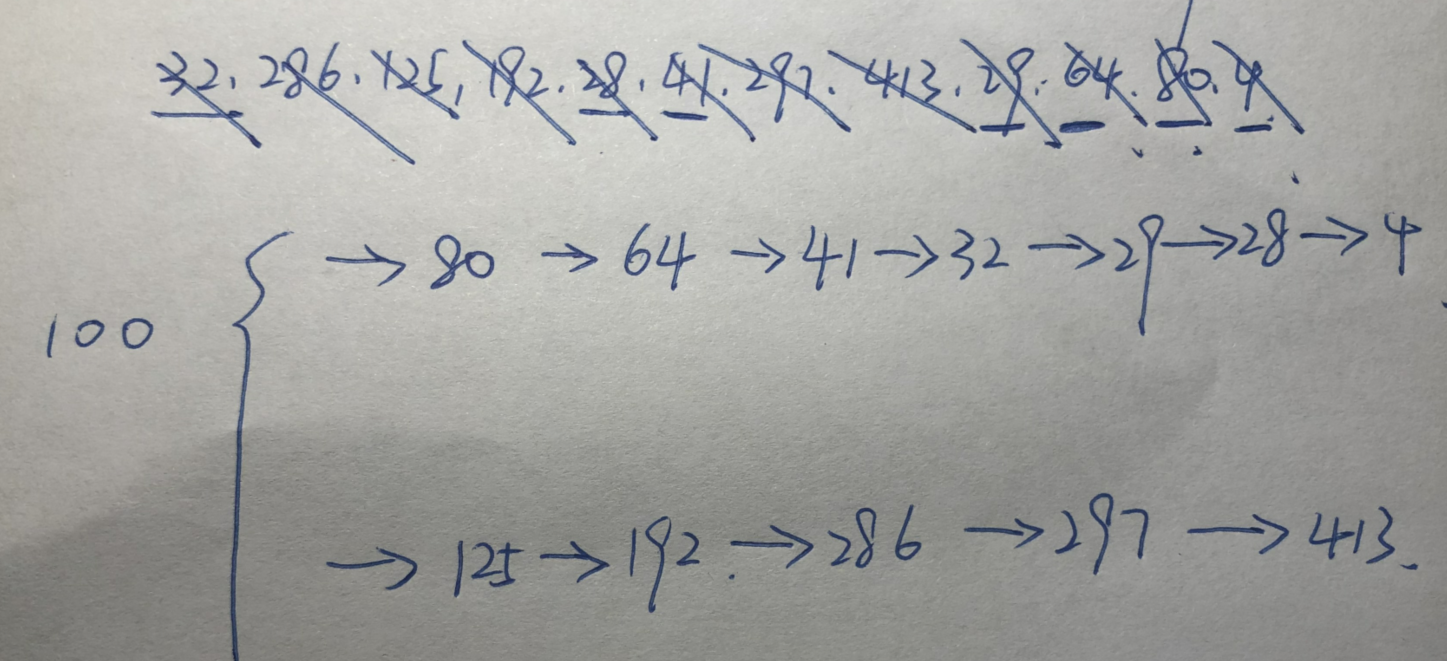 32. 286. 125, 192. 28. 41. 297. 413. 29. 64. 80. 4
→ 80 → 64 → 41 → 32 → 29 → 28 → 4
100
→ 125 → 192. → 286 → 297 → 413.